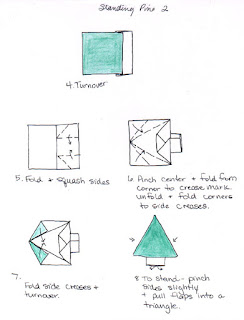 Standing Pine 2
4. Turnover
5. Fold + Squash sides
6. Pinch center + fold from
corner to crease mark.
unfold + fold corners
to side creases.
7.
Fold side creases +
turnover.
8 To stand - pinch
sides slightly
+ pull flaps into a
triangle.